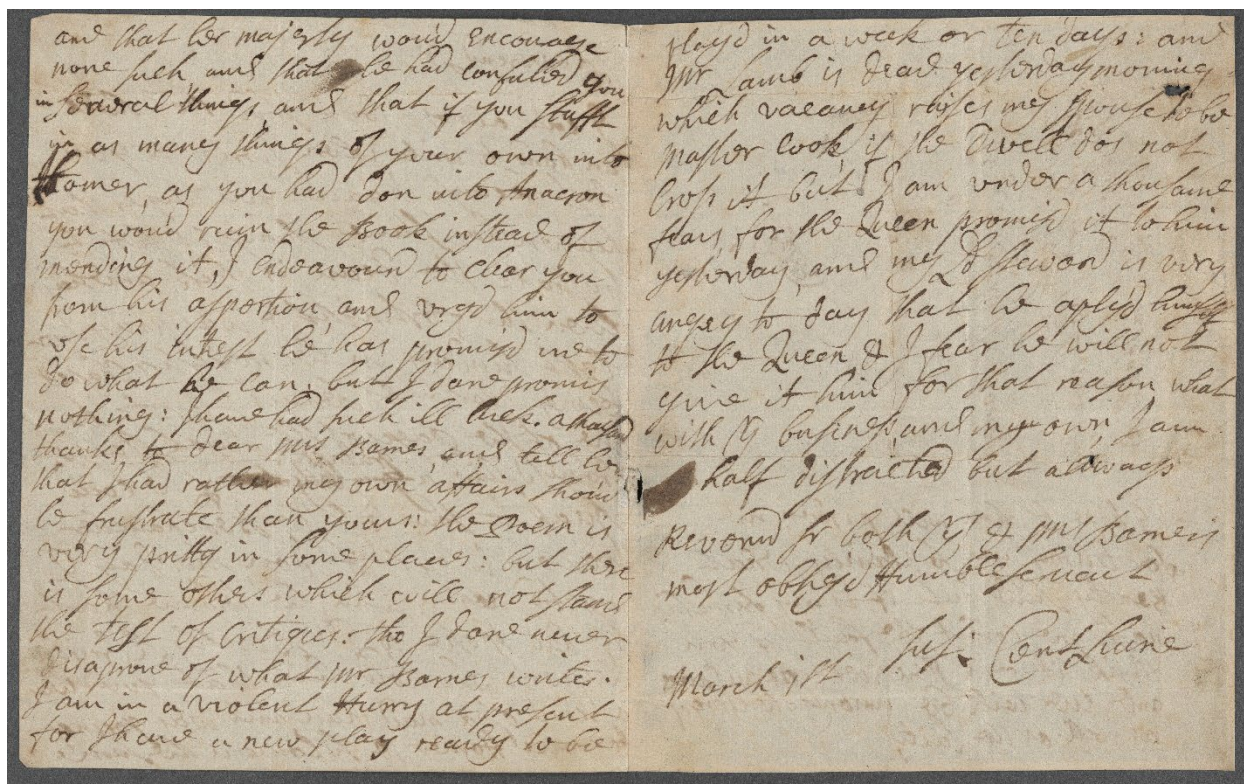 and that her majesty woud Encourage
none such and that he had consulted you
in several things, and that if you stufft
in as many things of your own into
Homer, as you had don into Anacron
you wou'd ruin the Book instead of
mending it, I endeavourd to clear you
from his aspertion and urg'd him to
use his intrest he has promis'd me to
do what he can, but I dare promis
nothing: I have had such ill luck. a thousand
thanks to dear Mrs Barnes, and tell her
that I had rather my own affairs shou'd
be frustrate than yours: the Poem is
very pritty in some places: but there
is some others which will not stand
the test of Critiques: tho I dare never
disaprove of what Mr Barnes writes.
I am in a violent Hurry at present
for I have a new play ready to be
play'd in a week or ten days: and
Mr Lamb is dead yesterday morning
which vacancy raises my spouse to be
Master Cook, if the Divell dos not
Cross it but I am under a thousand
fears, for the Queen promis'd it to him
yesterday, and my Ld Steward is very
angry to day that he aply'd himself
to the Queen & I fear he will not
give it him for that reason, what
with yr business, and my own, I am
half distracted but allways
Reverend Sr both yrs & Mrs Barnes's
most oblig'd Humble servant
Sus: CentLivre
March 1st